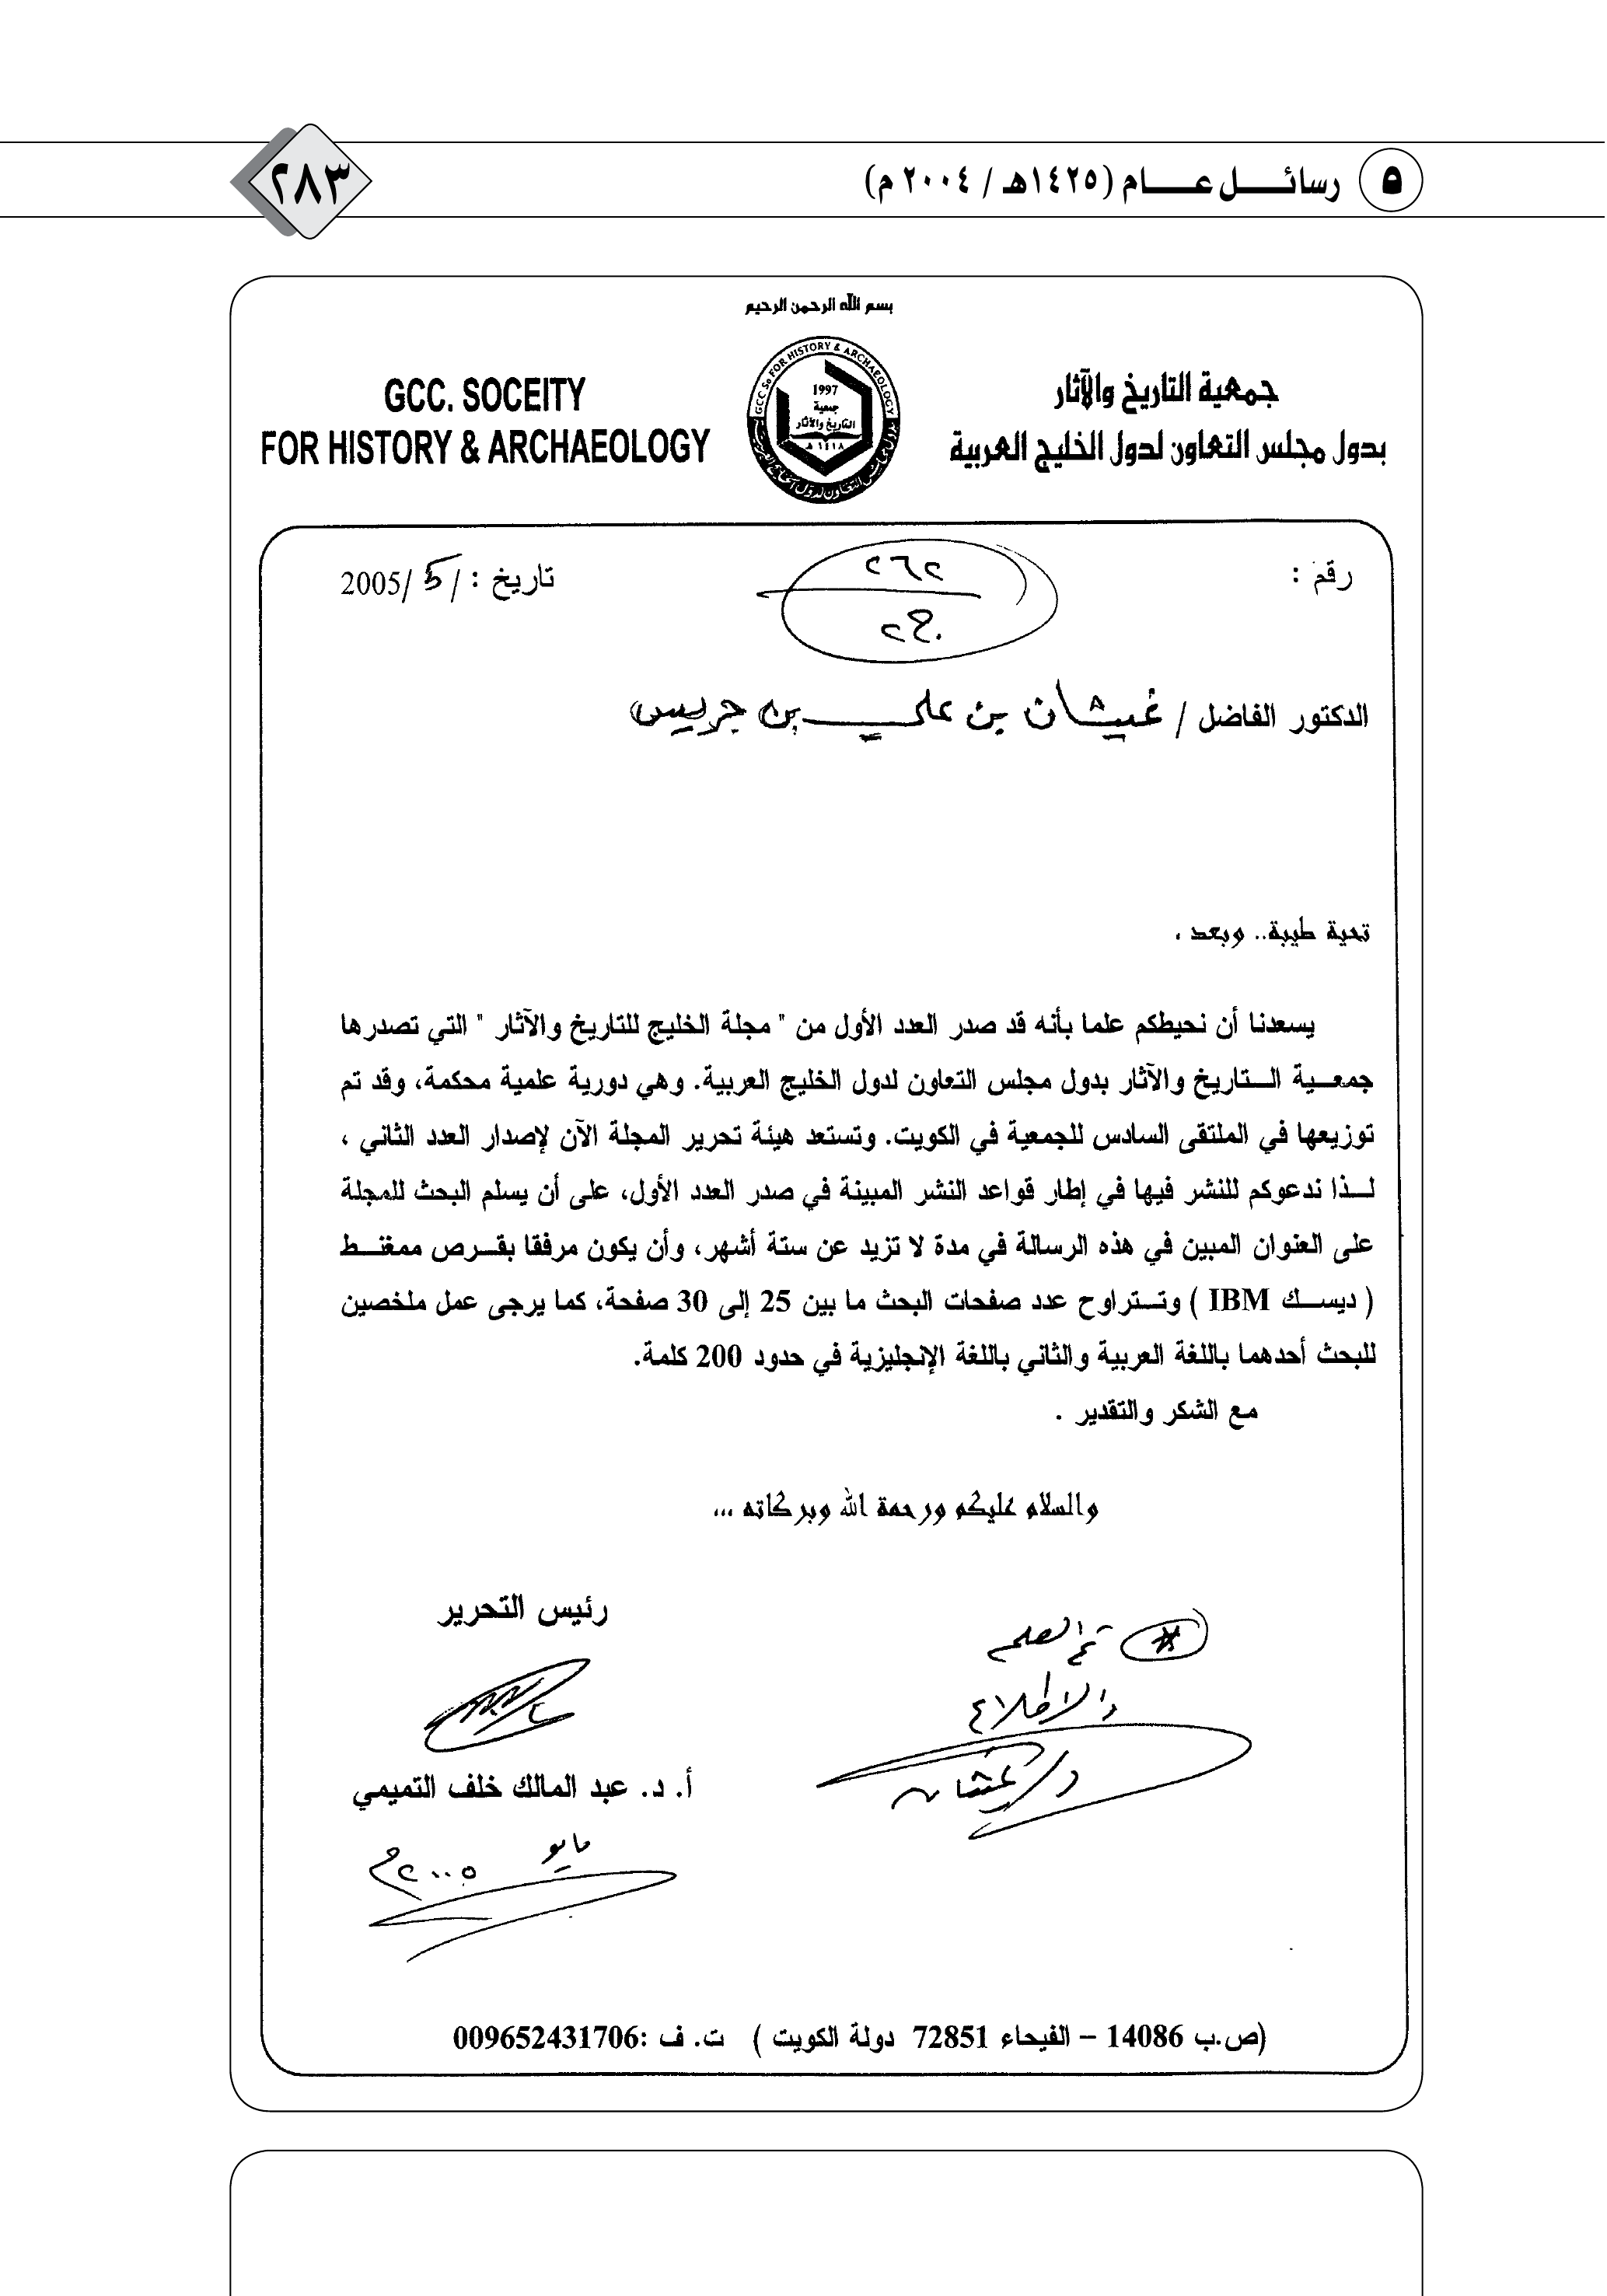 ٥ رسائل عام (١٤٢٥هـ / ٢٠٠٤ م)
٢٨٣
بسم الله الرحمن الرحيم
جمعية التاريخ والآثار
بدول مجلس التعاون لدول الخليج العربية
GCC So FOR HISTORY & ARCHAEOLOGY
1997
جمعية
التاريخ والآثار
١٤١٨ هـ
GCC. SOCEITY
FOR HISTORY & ARCHAEOLOGY
رقم :
٢٦٢
ج٢
تاريخ : / 5 /2005
الدكتور الفاضل / غيثان بن علي بن جريس
تحية طيبة.. وبعد ،
يسعدنا أن نحيطكم علما بأنه قد صدر العدد الأول من " مجلة الخليج للتاريخ والآثار " التي تصدرها
جمعية التاريخ والآثار بدول مجلس التعاون لدول الخليج العربية. وهي دورية علمية محكمة، وقد تم
توزيعها في الملتقى السادس للجمعية في الكويت. وتستعد هيئة تحرير المجلة الآن لإصدار العدد الثاني ،
لذا ندعوكم للنشر فيها في إطار قواعد النشر المبينة في صدر العدد الأول، على أن يسلم البحث للمجلة
على العنوان المبين في هذه الرسالة في مدة لا تزيد عن ستة أشهر، وأن يكون مرفقا بقرص ممغنط
( ديسك IBM ) وتتراوح عدد صفحات البحث ما بين 25 إلى 30 صفحة، كما يرجى عمل ملخصين
للبحث أحدهما باللغة العربية والثاني باللغة الإنجليزية في حدود 200 كلمة.
مع الشكر والتقدير .
والسلام عليكم ورحمة الله وبركاته ...
رئيس التحرير
تم العلم
والاطلاع
د/ غيثان
أ. د. عبد المالك خلف التميمي
مايو
٢٠٠٥م
(ص.ب 14086 – الفيحاء 72851 دولة الكويت ) ت. ف :009652431706